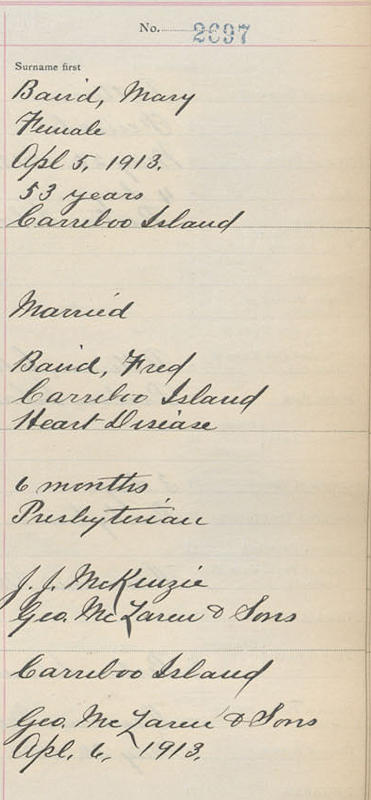 No. 2697
Surname first
Baird, Mary
Female
Apl 5, 1913.
53 years
Carriboo Island
Married
Baird, Fred
Carriboo Island
Heart Disease
6 months
Presbyterian
J. J. McKenzie
Geo. McLaren & Sons
Carriboo Island
Geo. McLaren & Sons
Apl. 6, 1913.